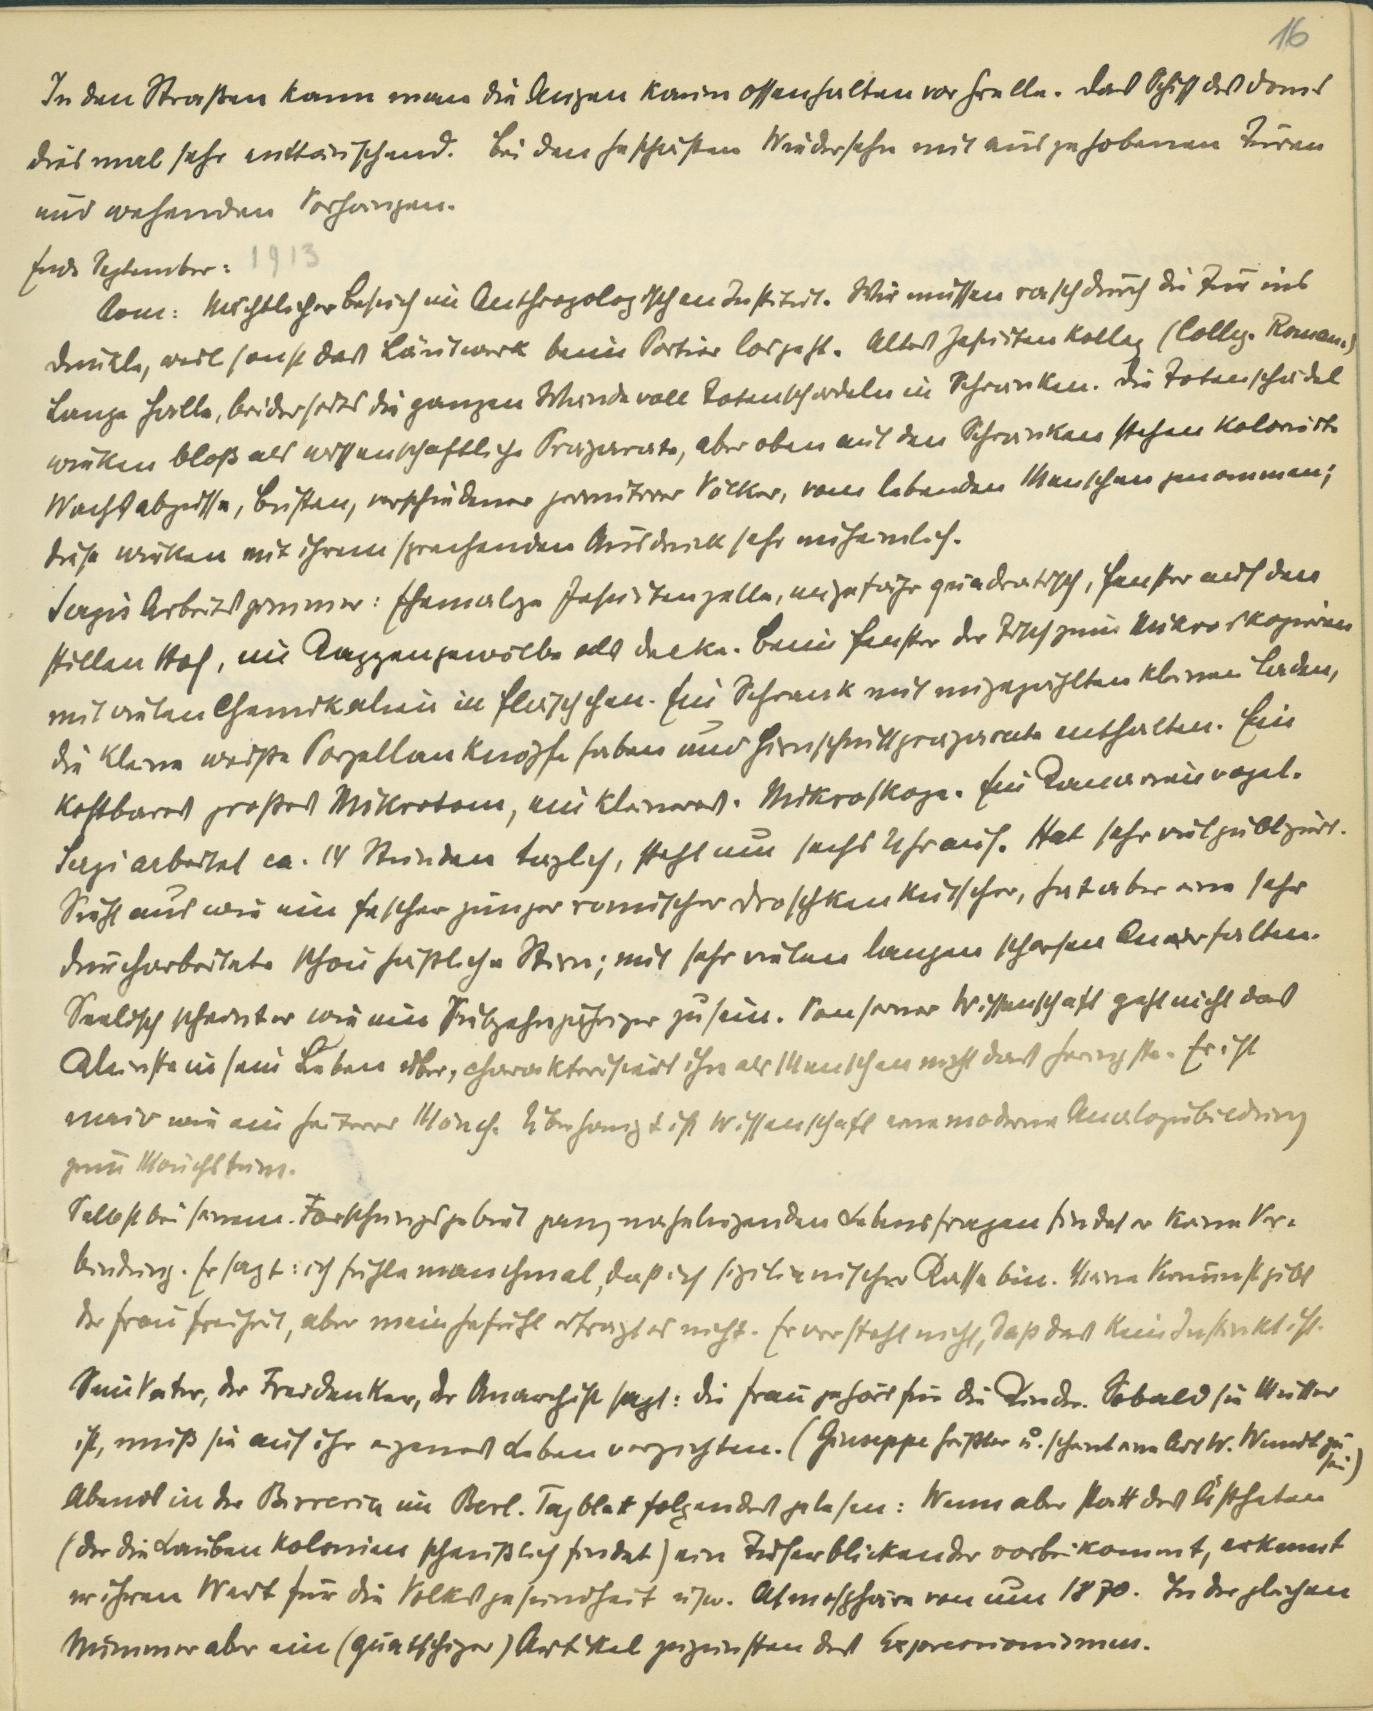 16
In den Straßen kann man die Augen kaum offenhalten vor Helle. Das Schiff des Doms
diesmal sehr enttäuschend. Bei den Geschäften Wiedersehn mit ausgehobenen Türen
und wehenden Vorhängen.
Ende September: 1913
Rom: Nächtlicher Besuch im Anthropologischen Institut. Wir müssen rasch durch die Tür ins
Dunkle, weil sonst das Läutwerk beim Portier losgeht. Altes Jesuitenkolleg (Colleg. Roman.)
Lange Halle, beiderseits die ganzen Wände voll Totenschädeln in Schränken. Die Totenschädel
wirken bloß als wissenschaftliche Präparate, aber oben auf den Schränken stehen kolorierte
Wachsabgüsse, Büsten, verschiedener primitiver Völker, vom lebenden Menschen genommen;
diese wirken mit ihrem sprechenden Ausdruck sehr unheimlich.
Sergis Arbeitszimmer: Ehemalige Jesuitenzelle, ungefähr quadratisch, Fenster auf den
stillen Hof, ein Kappengewölbe als Decke. Beim Fenster der Tisch zum Mikroskopieren
mit vielen Chemikalien in Fläschchen. Ein Schrank mit ungezählten kleinen Laden,
die kleine weiße Porzellanknöpfe haben und Hirnschnittpräparate enthalten. Ein
kostbares großes Mikrotom, ein kleineres. Mikroskope. Ein Kanarienvogel.
Sergi arbeitet ca. 14 Stunden täglich, steht um sechs Uhr auf. Hat sehr viel publiziert.
Sieht aus wie ein fescher junger römischer Droschkenkutscher, hat aber eine sehr
durcharbeitete schön häßliche Stirn; mit sehr vielen langen scharfen Querfalten.
Seelisch scheint er wie ein Siebzehnjähriger zu sein. Von seiner Wissenschaft geht nicht das
Kleinste in sein Leben über, charakterisiert ihn als Menschen nicht das Geringste. Er ist
naiv wie ein heiterer Mönch. Überhaupt ist Wissenschaft eine moderne Analogiebildung
zum Mönchstum.
Selbst bei seinem Forschungsgebiet ganz naheliegenden Lebensfragen findet er keine Ver-
bindung. Er sagt: ich fühle manchmal, daß ich sizilianischer Rasse bin. Meine Vernunft gibt
der Frau Freiheit, aber mein Gefühl erträgt es nicht. Er versteht nicht, daß das kein Instinkt ist.
Sein Vater, der Freidenker, der Anarchist sagt: die Frau gehört für die Kinder. Sobald sie Mutter
ist, muß sie auf ihr eigenes Leben verzichten. (Giuseppe heißt er u. scheint eine Art W. Wundt zu
sein)
Abends in der Birreria im Berl. Tagblatt folgendes gelesen: Wenn aber statt des Ästheten
(der die Laubenkolonien scheußlich findet) ein Tieferblickender vorbeikommt, erkennt
er ihren Wert für die Volksgesundheit usw. Atmosphäre von um 1870. In der gleichen
Nummer aber ein (quatschiger) Artikel zugunsten des Expressionismus.